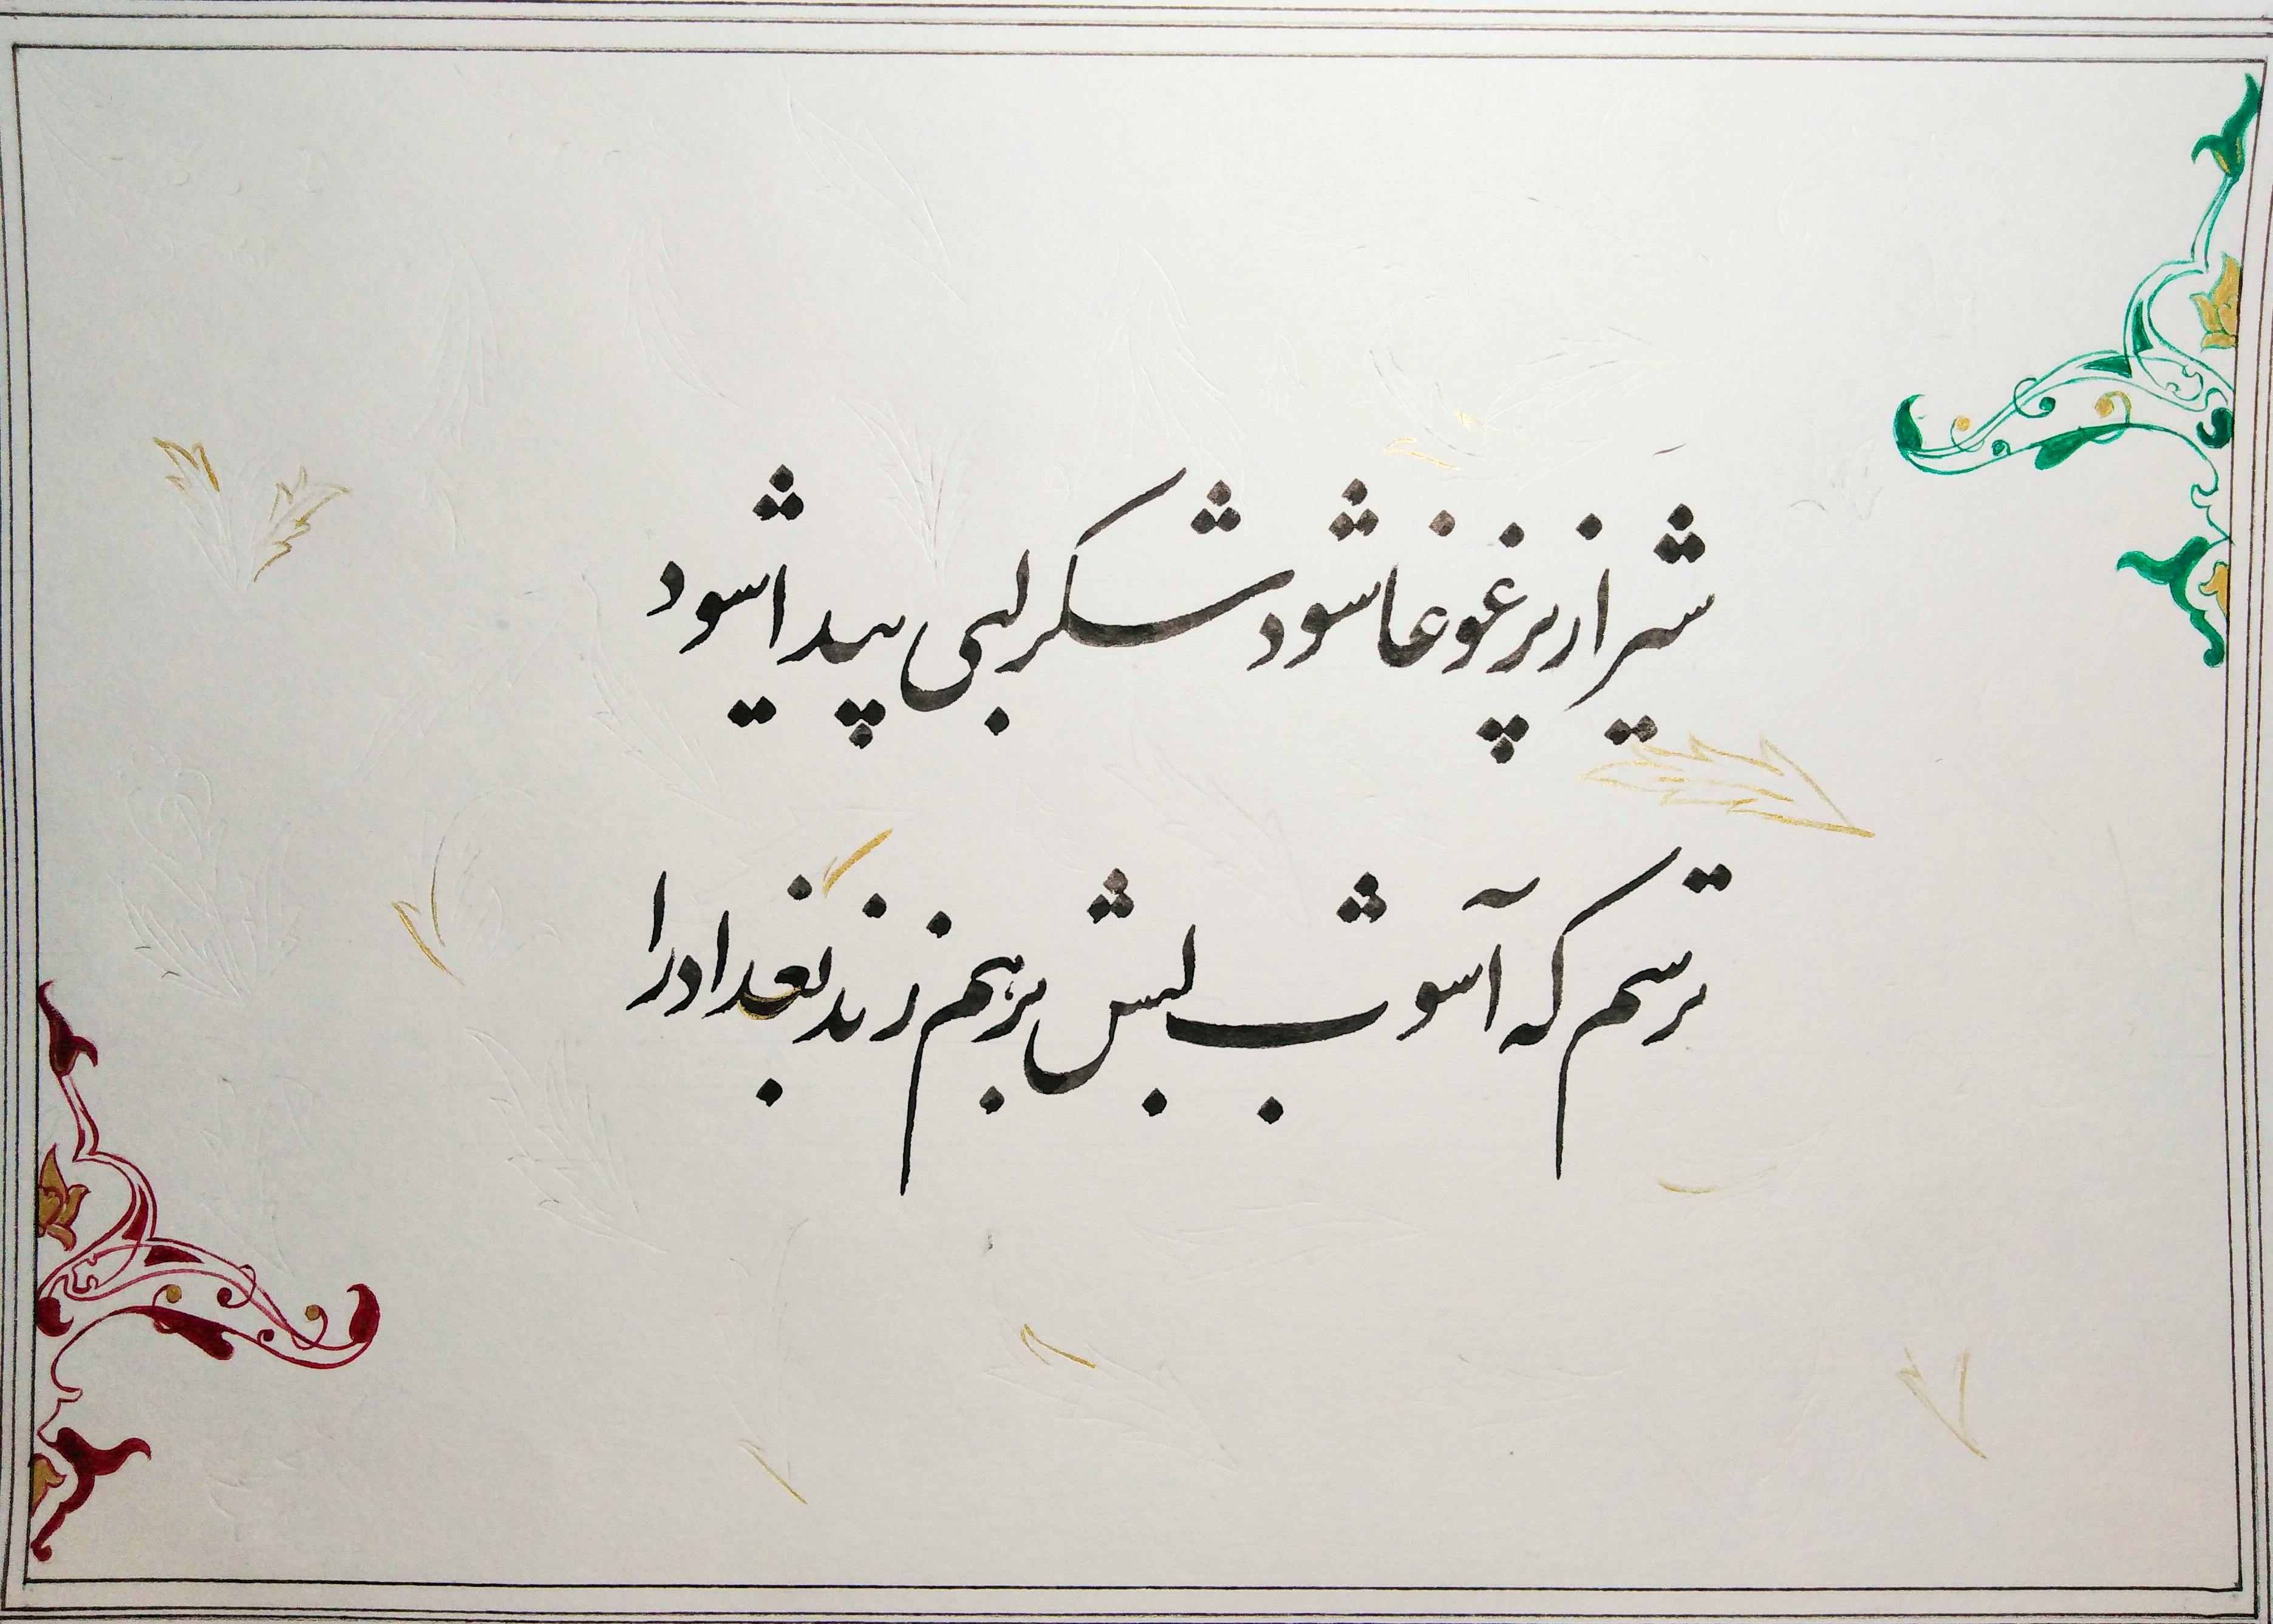 شیراز پر غوغا شود شکر لبی پیدا شود
ترسم که آشوب لبش بر هم زند بغداد را